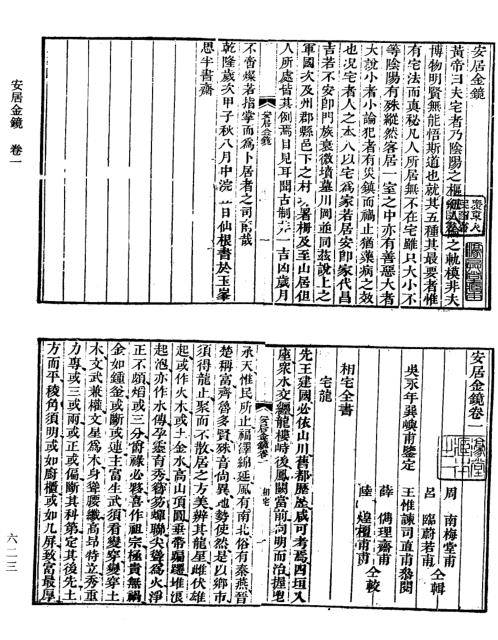 安居金鏡
黃帝曰夫宅者乃陰陽之樞紐人倫之軌模非夫
博物明賢無能悟斯道也就其五種其最要者惟
有宅法而真秘凡人所居無不在宅雖只大小不
等陰陽有殊縱然客居一室之中亦有善惡大者
大說小者小論犯者有災鎮而禍止猶藥病之效
也況宅者人之本人以宅為家若居安即家代昌
吉若不安即門族衰微墳墓川岡並同茲說上之
軍國次及州郡縣邑下之村 署柵及至山居但
人所處皆其例焉目見耳聞古制 一吉凶歲月
不啻燦若指掌而為卜居者之司南哉
乾隆歲次甲子秋八月中浣 日仙根書於玉峯
恩半書齋
安居金鏡 卷一
六二三
安居金鏡卷一
周 南梅堂甫
吕 臨蔚若甫 仝輯
吳永年巽嶼甫鑒定
王惟諫司直甫叅閱
薛 儁理齋甫
陸 煌極甫 仝較
相宅全書
宅龍
先王建國必依山川舊都歷歷咸可考焉四垣入
座眾水交纒龍樓峙後鳳闕當前向明而治握地
承天惟民所止福澤綿延風有南北俗有秦燕晉
楚稱富齊魯多賢殊音尚異地勢使然是以鄉市
須得龍止聚而不散居之方美辨其龍星雌伏雄
起或作火木或土金水高山頂圓垂帶偏纒堆浪
起泡亦作水傳孕靈育秀 聯尖聳為火淨
正不頗熖或三分爵祿必夥喜作祖宗極貴無禍
金如鍾釜或斷或連主富生武須看變穿變穿土
木文武兼權文星為木身聳腰纖高昂特立秀重
力專或三或兩或正或偏斷其科第定其後先土
方而平稜角須明或如廚櫃或如几屏致富最厚